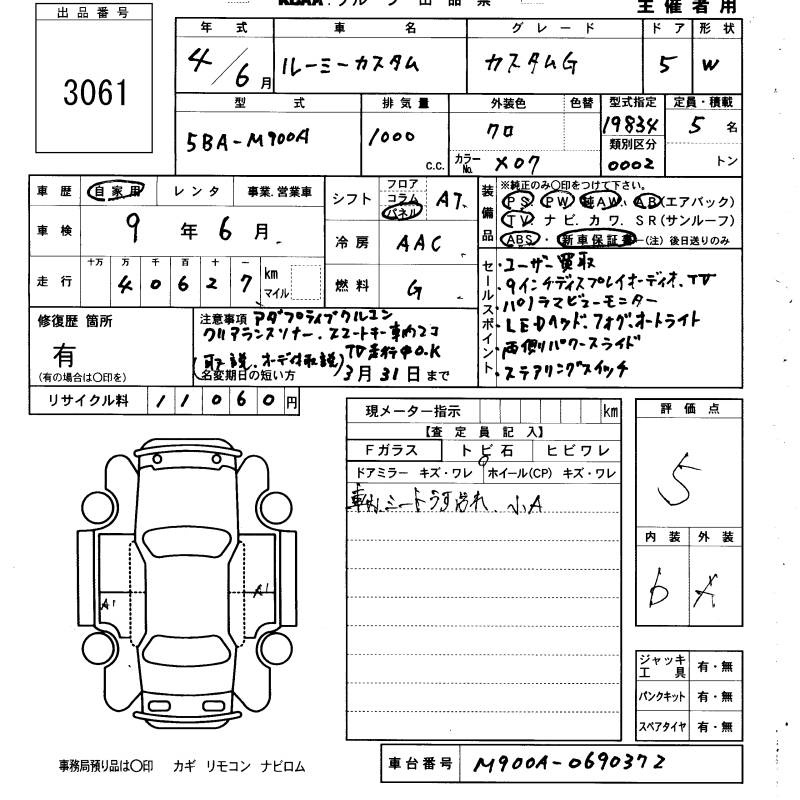 出品番号
3061
主催者用
年式 車名 グレード ドア 形状
4/6月 ルーミーカスタム カスタムG 5 W
型式 排気量 外装色 色替 型式指定 定員・積載
5BA-M900A 1000 c.c. クロ 19834 5名
カラーNo. X07 類別区分 0002 トン
車歴 自家用 レンタ 事業.営業車
車検 9年6月
走行 十万 万 千 百 十 一
40627 km マイル
シフト フロア コラム パネル AT
冷房 AAC
燃料 G
装備品 ※純正のみ〇印をつけて下さい。
PS PW 純AW. AB(エアバック)
TV ナビ.カワ.SR(サンルーフ)
ABS・新車保証書-(注)後日送りのみ
セールスポイント
・ユーザー買取
・9インチディスプレイオーディオ、TV
・パノラマビューモニター
・LEDヘッド、フォグ、オートライト
・両側パワースライド
・ステアリングスイッチ
修復歴 箇所
有
(有の場合は〇印を)
注意事項 アダプティブクルコン
クリアランスソナー、スマートキー車内2コ
TV走行中O.K
(取説、オーディオ取説)
(名変期日の短い方) 3月31日まで
リサイクル料 11060円
現メーター指示 km
【査定員記入】
Fガラス トビ石 ヒビワレ
ドアミラー キズ・ワレ ホイール(CP) キズ・ワレ
車内シートうす汚れ、小A
評価点
5
内装 外装
b A
A1 A1
ジャッキ工具 有・無
パンクキット 有・無
スペアタイヤ 有・無
事務局預り品は〇印 カギ リモコン ナビロム
車台番号 M900A-0690372